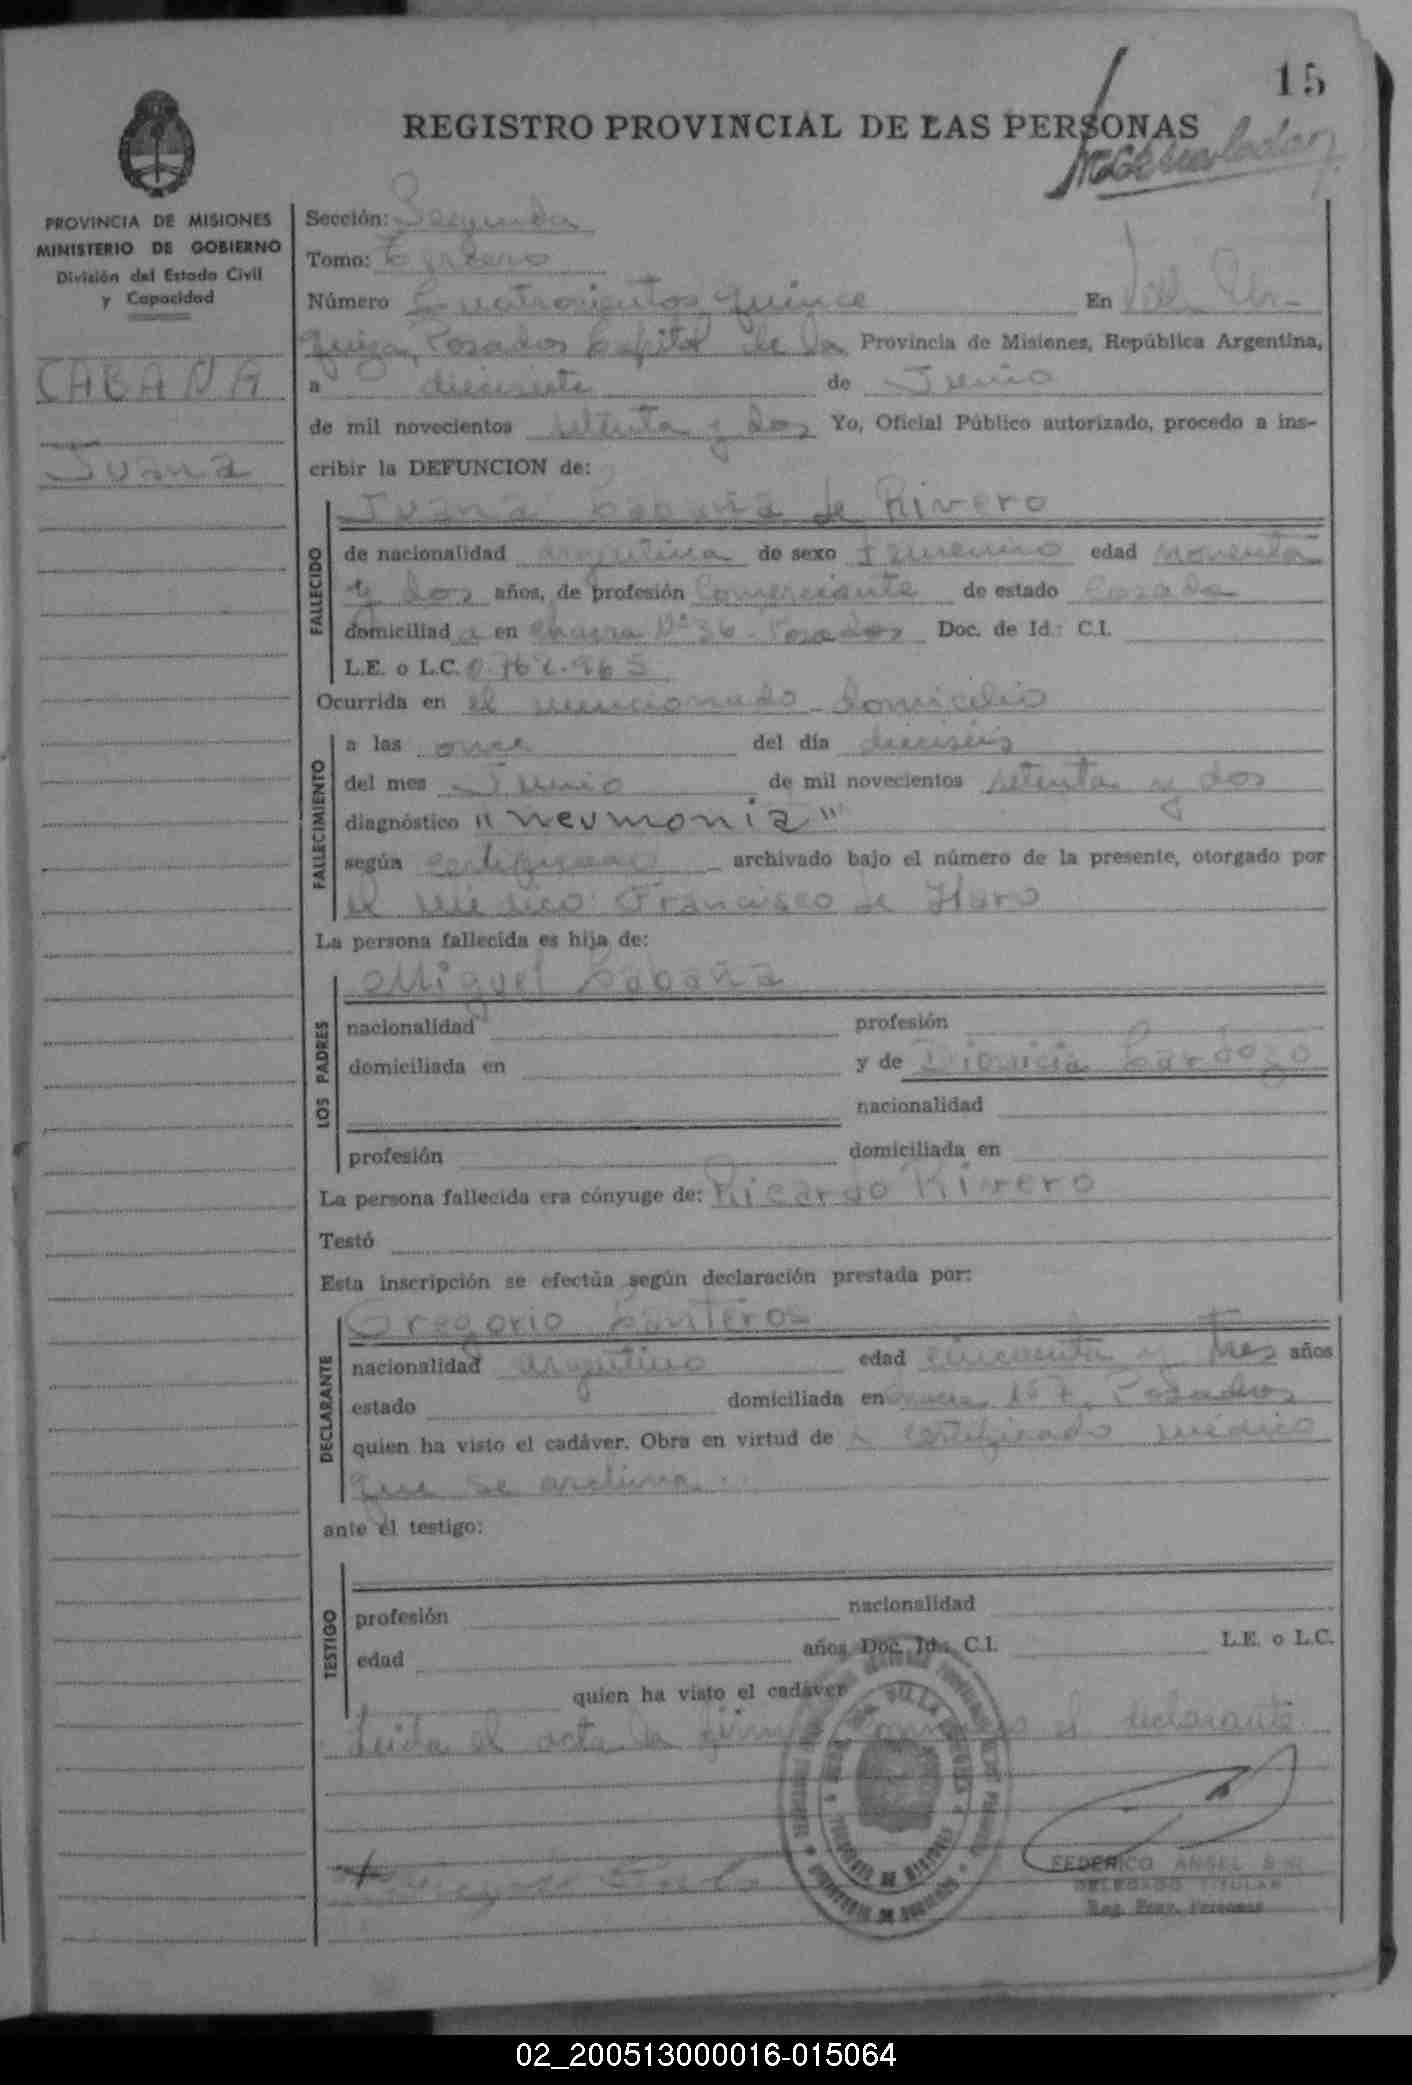 15
REGISTRO PROVINCIAL DE LAS PERSONAS
PROVINCIA DE MISIONES
MINISTERIO DE GOBIERNO
División del Estado Civil
y Capacidad
CABAÑA
Juana
Sección: Segunda
Tomo: Tercero
Número Cuatrocientos quince En Villa Ur-
quiza, Posadas Capital de la Provincia de Misiones, República Argentina,
a diecisiete de Junio
de mil novecientos setenta y dos Yo, Oficial Público autorizado, procedo a ins-
cribir la DEFUNCION de:
Juana Cabaña de Rivero
FALLECIDO
de nacionalidad argentina de sexo femenino edad noventa
y dos años, de profesión Comerciante de estado Casada
domiciliad a en Chacra Nº 36 - Posadas Doc. de Id.: C.I.
L.E. o L.C.
Ocurrida en el mencionado domicilio
FALLECIMIENTO
a las once del día dieciséis
del mes Junio de mil novecientos setenta y dos
diagnóstico "neumonía"
según certificado archivado bajo el número de la presente, otorgado por
el médico Francisco de Haro
La persona fallecida es hija de:
LOS PADRES
Miguel Cabaña
nacionalidad profesión
domiciliada en y de Dionicia Cardozo
nacionalidad
profesión domiciliada en
La persona fallecida era cónyuge de: Ricardo Rivero
Testó
Esta inscripción se efectúa según declaración prestada por:
DECLARANTE
Gregorio Canteros
nacionalidad argentino edad cincuenta y tres años
estado domiciliada en Posadas
quien ha visto el cadáver. Obra en virtud de certificado médico
que se archiva.
ante el testigo:
TESTIGO
profesión nacionalidad
edad años Doc. Id.: C.I. L.E. o L.C.
quien ha visto el cadáver
Leida el acta la firma el declarante
FEDERICO ANGEL
DELEGADO TITULAR
Reg. Prov. Personas
02_200513000016-015064